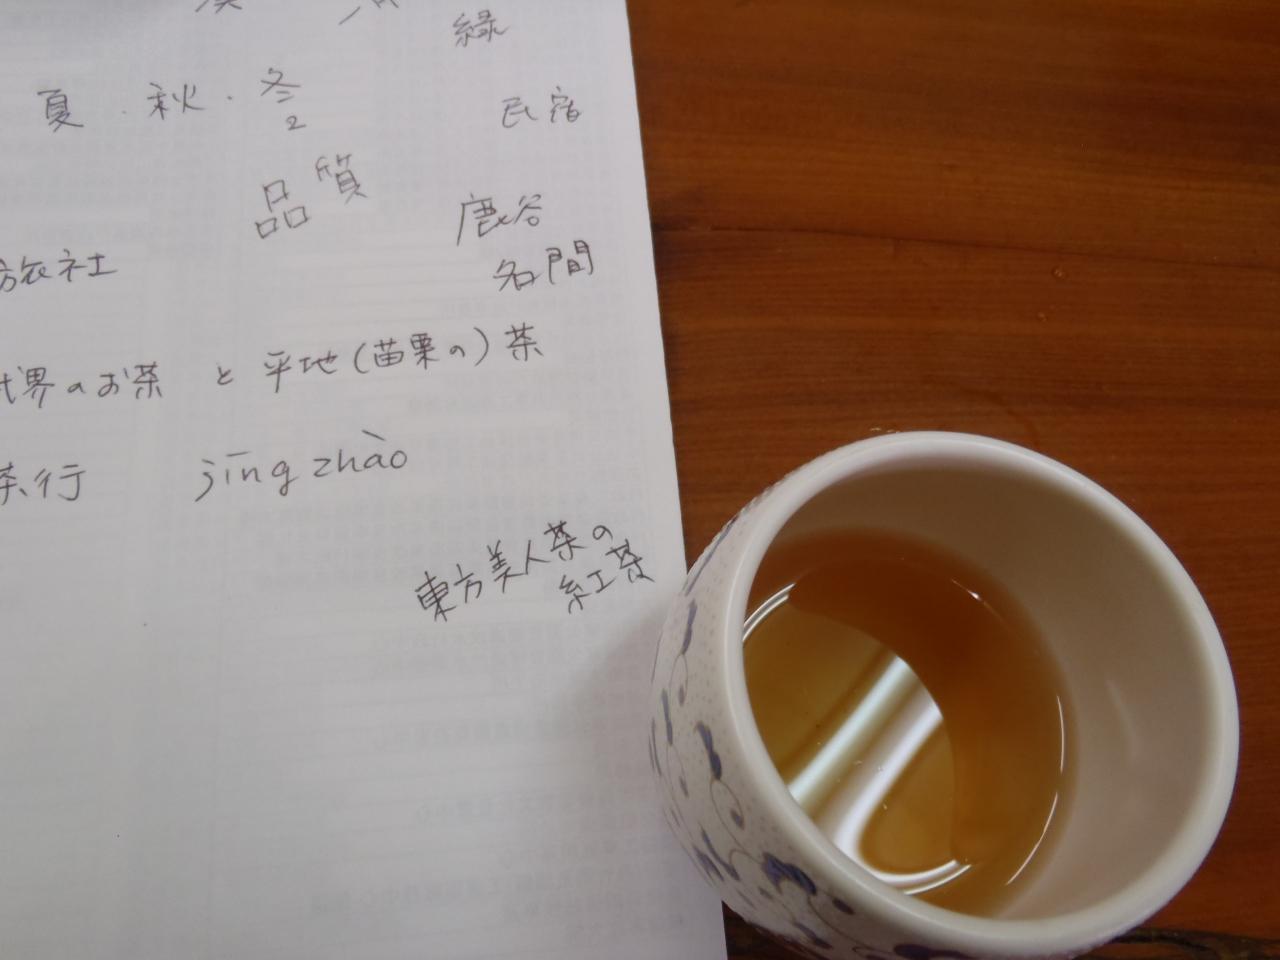 緑
夏・秋・冬
2
民宿
品質
鹿谷
名間
旅社
世界のお茶 と 平地(苗栗の)茶
茶行 jīng zhào
東方美人茶の
紅茶